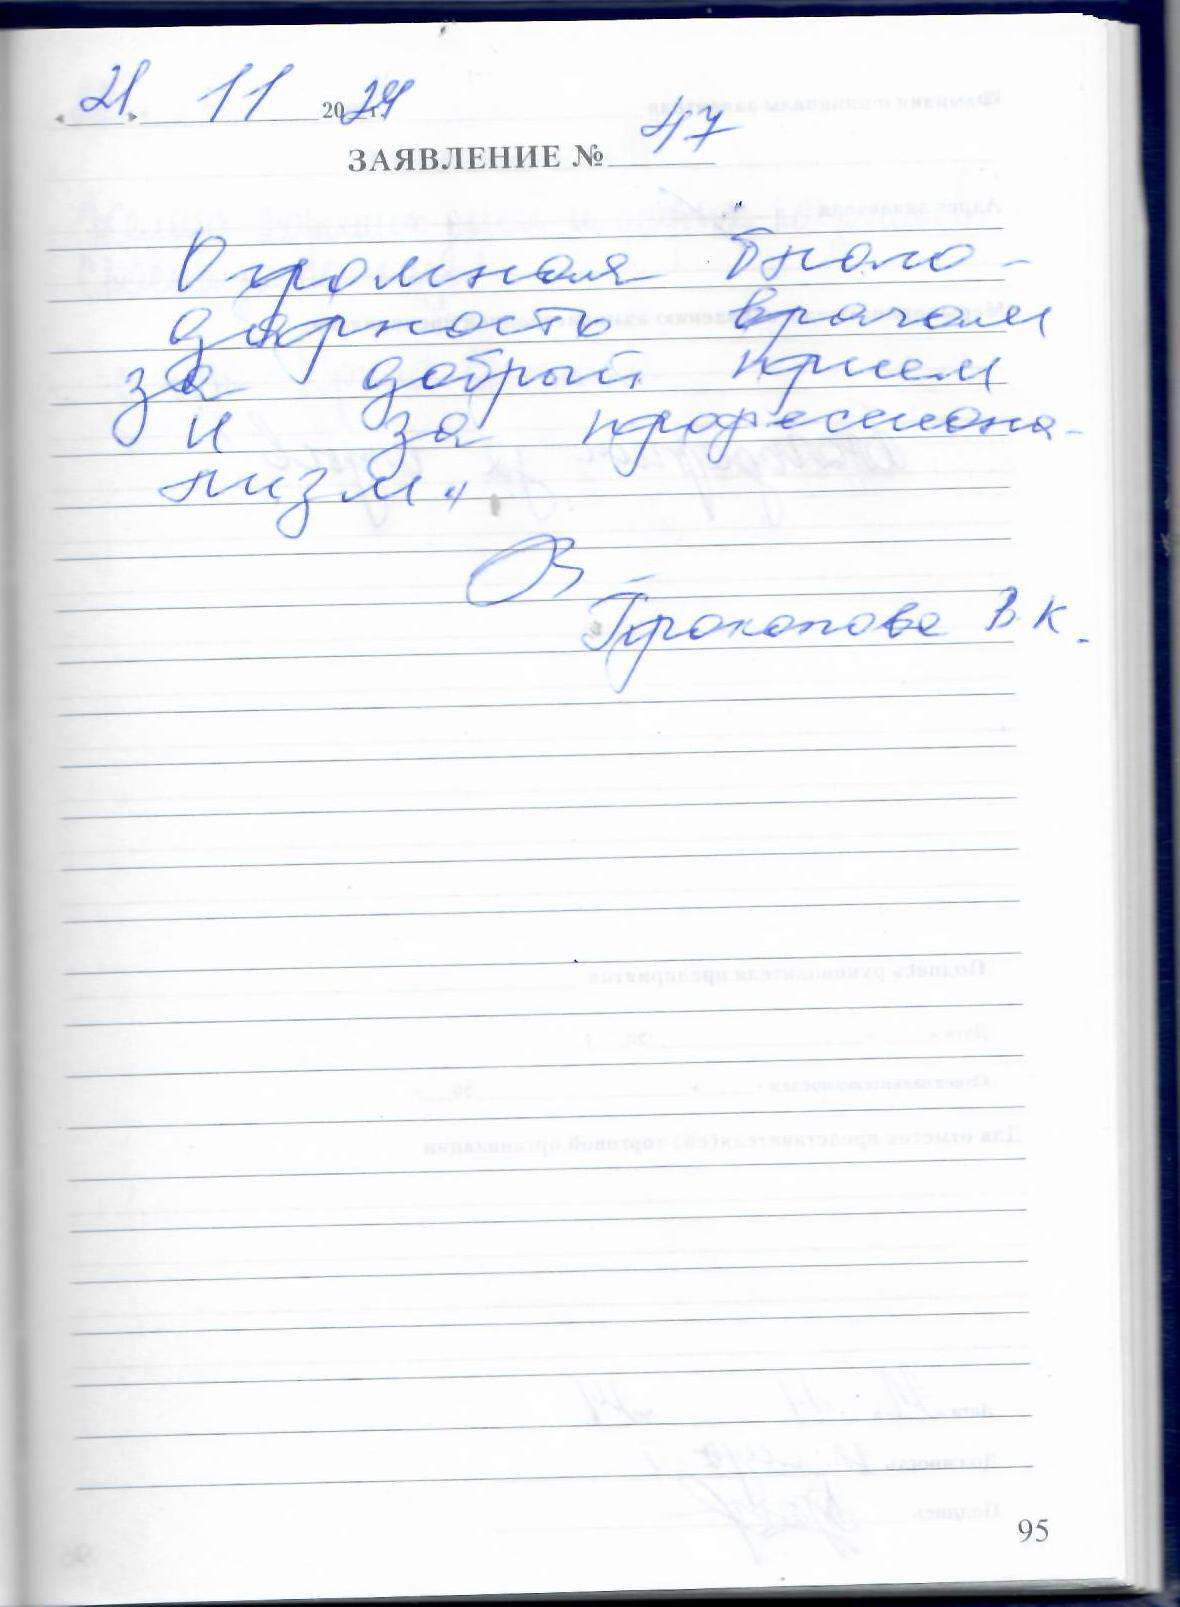 «21» 11 2024 г.
ЗАЯВЛЕНИЕ № 47
Огромная благо-
дарность врачам
за добрый прием
и за профессиона-
лизм.
Прокопова В.К.
95